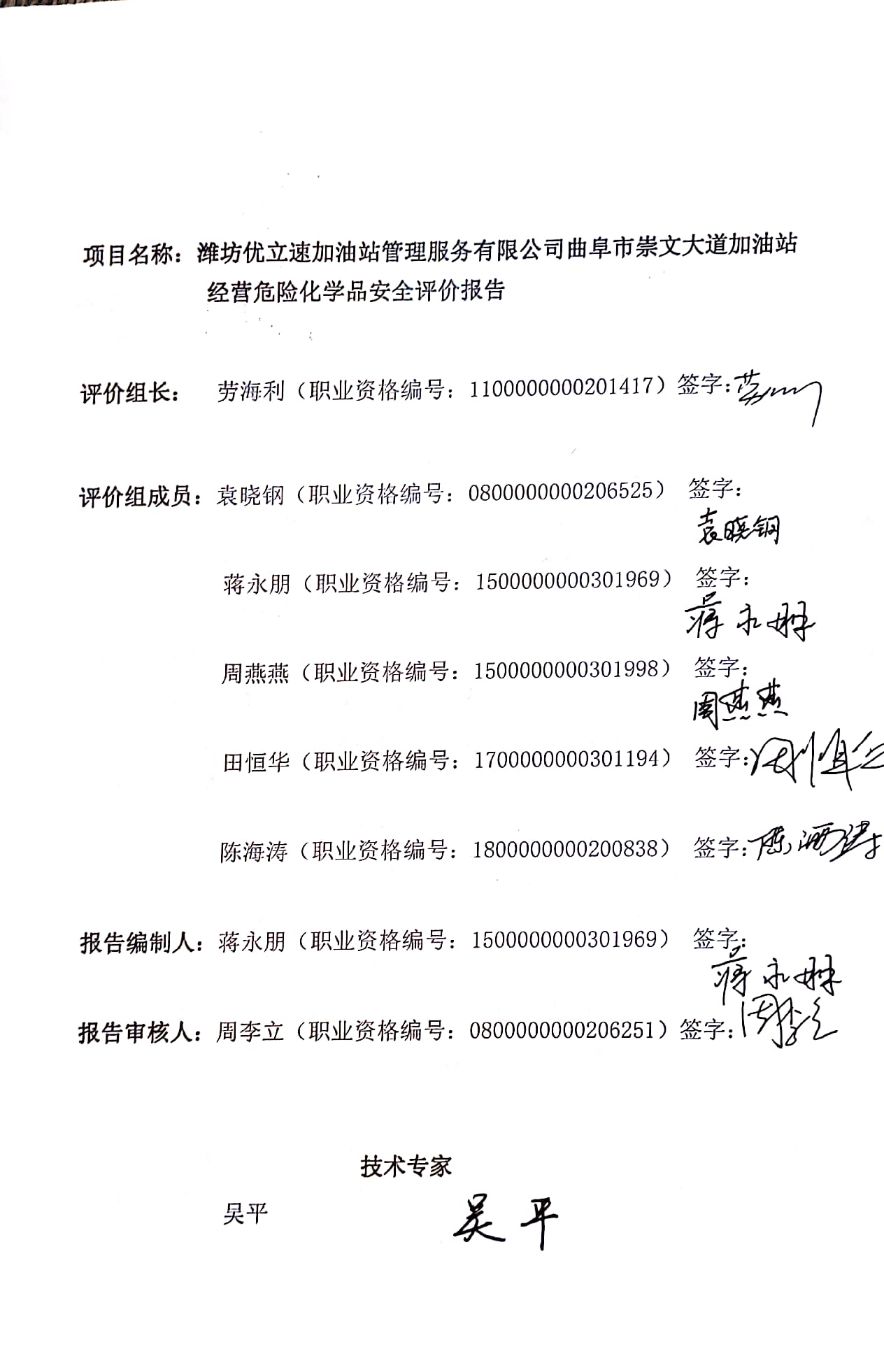 项目名称：潍坊优立速加油站管理服务有限公司曲阜市崇文大道加油站
经营危险化学品安全评价报告
评价组长： 劳海利（职业资格编号：1100000000201417）签字：
评价组成员：袁晓钢（职业资格编号：0800000000206525） 签字：
袁晓钢
蒋永朋（职业资格编号：1500000000301969） 签字：
蒋永朋
周燕燕（职业资格编号：1500000000301998） 签字：
周燕燕
田恒华（职业资格编号：1700000000301194） 签字：
陈海涛（职业资格编号：1800000000200838） 签字：陈海涛
报告编制人：蒋永朋（职业资格编号：1500000000301969） 签字：
蒋永朋
报告审核人：周李立（职业资格编号：0800000000206251）签字：周李立
技术专家
吴平 吴平